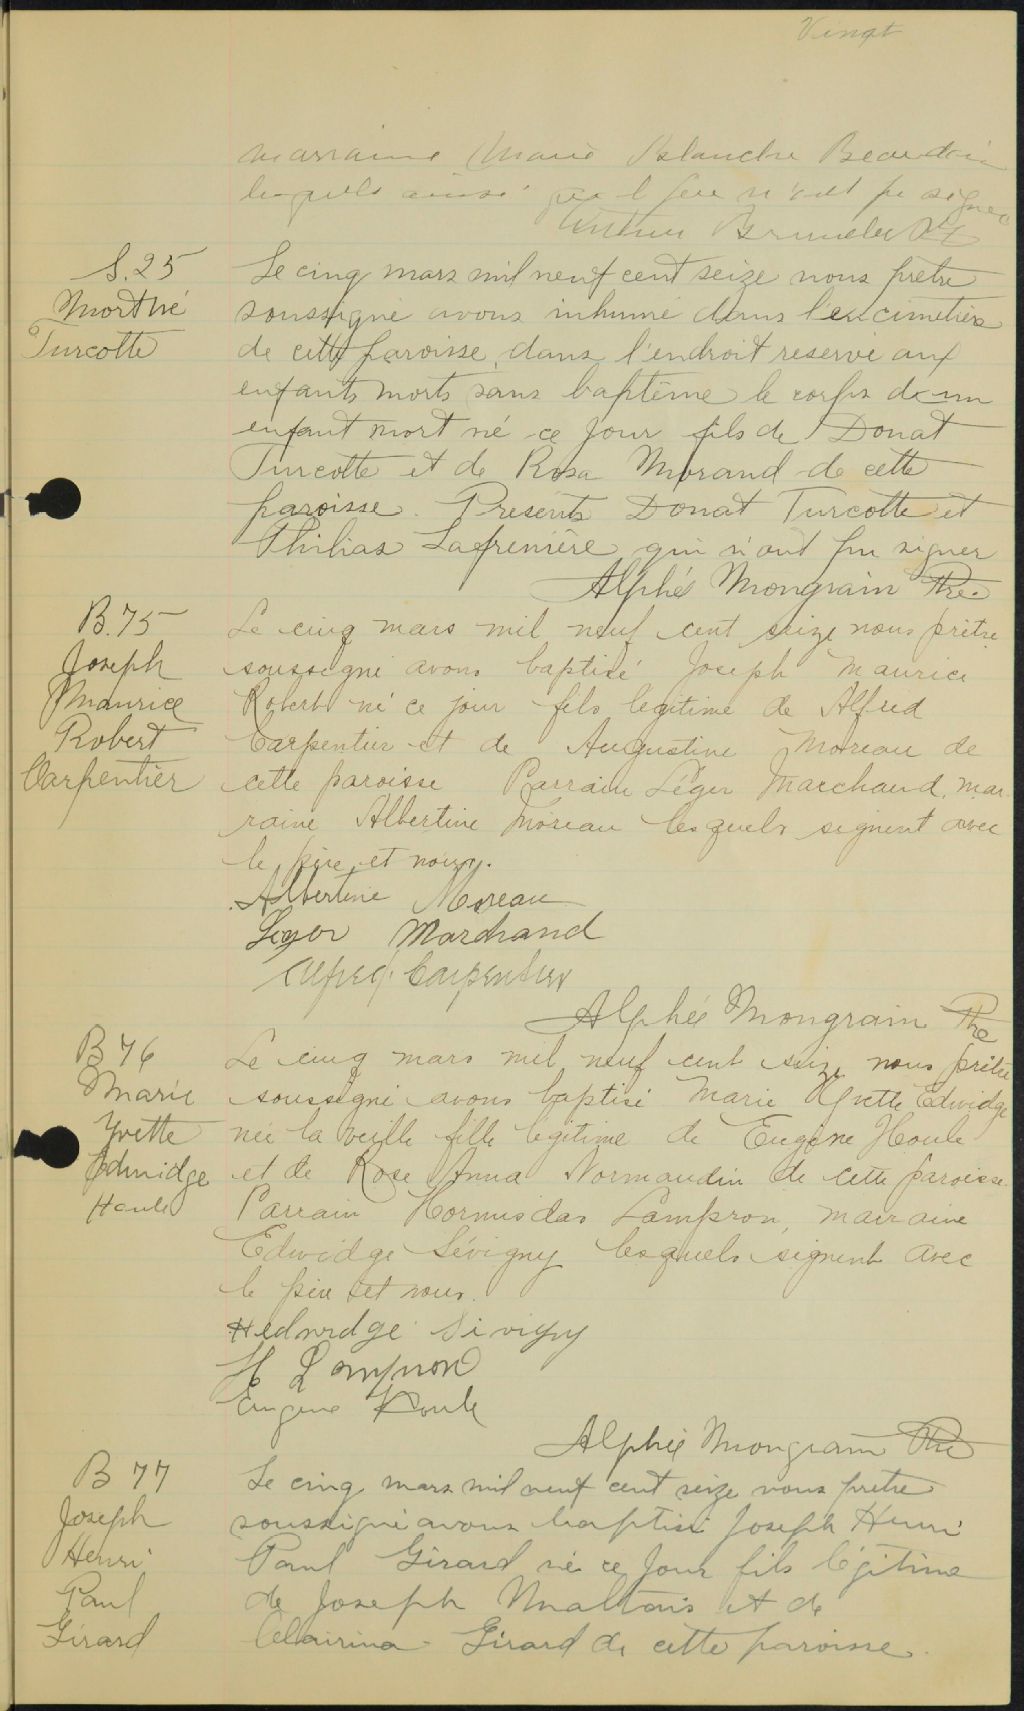 Vingt
marraine Marie Blanche Beaudoin
lesquels ainsi que le père n'ont pu signer
Arthur Ptre
S. 25
Mort né
Turcotte
Le cinq mars mil neuf cent seize nous prêtre
soussigné avons inhumé dans le cimetière
de cette paroisse dans l'endroit reservé aux
enfants morts sans baptême le corps de un
enfant mort né ce jour fils de Donat
Turcotte et de Rosa Morand de cette
paroisse. Présents Donat Turcotte et
Philias Lafrenière qui n'ont pu signer
Alphée Mongrain Ptre
B. 75
Joseph
Maurice
Robert
Carpentier
Le cinq mars mil neuf cent seize nous prêtre
soussigné avons baptisé Joseph Maurice
Robert né ce jour fils legitime de Alfred
Carpentier et de Augustine Moreau de
cette paroisse Parrain Léger Marchand, mar
raine Albertine Moreau lesquels signent avec
le père et nous.
Albertine Moreau
Leger Marchand
Alfred Carpentier
Alphée Mongrain Ptre
B 76
Marie
Yvette
Edwidge
Houle
Le cinq mars mil neuf cent seize nous prêtre
soussigné avons baptisé Marie Yvette Edwidge
née la veille fille legitime de Eugène Houle
et de Rose Anna Normandin de cette paroisse
Parrain Hormisdas Lampron, marraine
Edwidge Sévigny lesquels signent avec
le père et nous.
Hedwidge Sivigny
H Lampron
Eugene Houle
Alphée Mongrain Ptre
B 77
Joseph
Henri
Paul
Girard
Le cinq mars mil neuf cent seize nous prêtre
soussigné avons baptisé Joseph Henri
Paul Girard né ce jour fils légitime
de Joseph Maltais et de
Clairina Girard de cette paroisse.